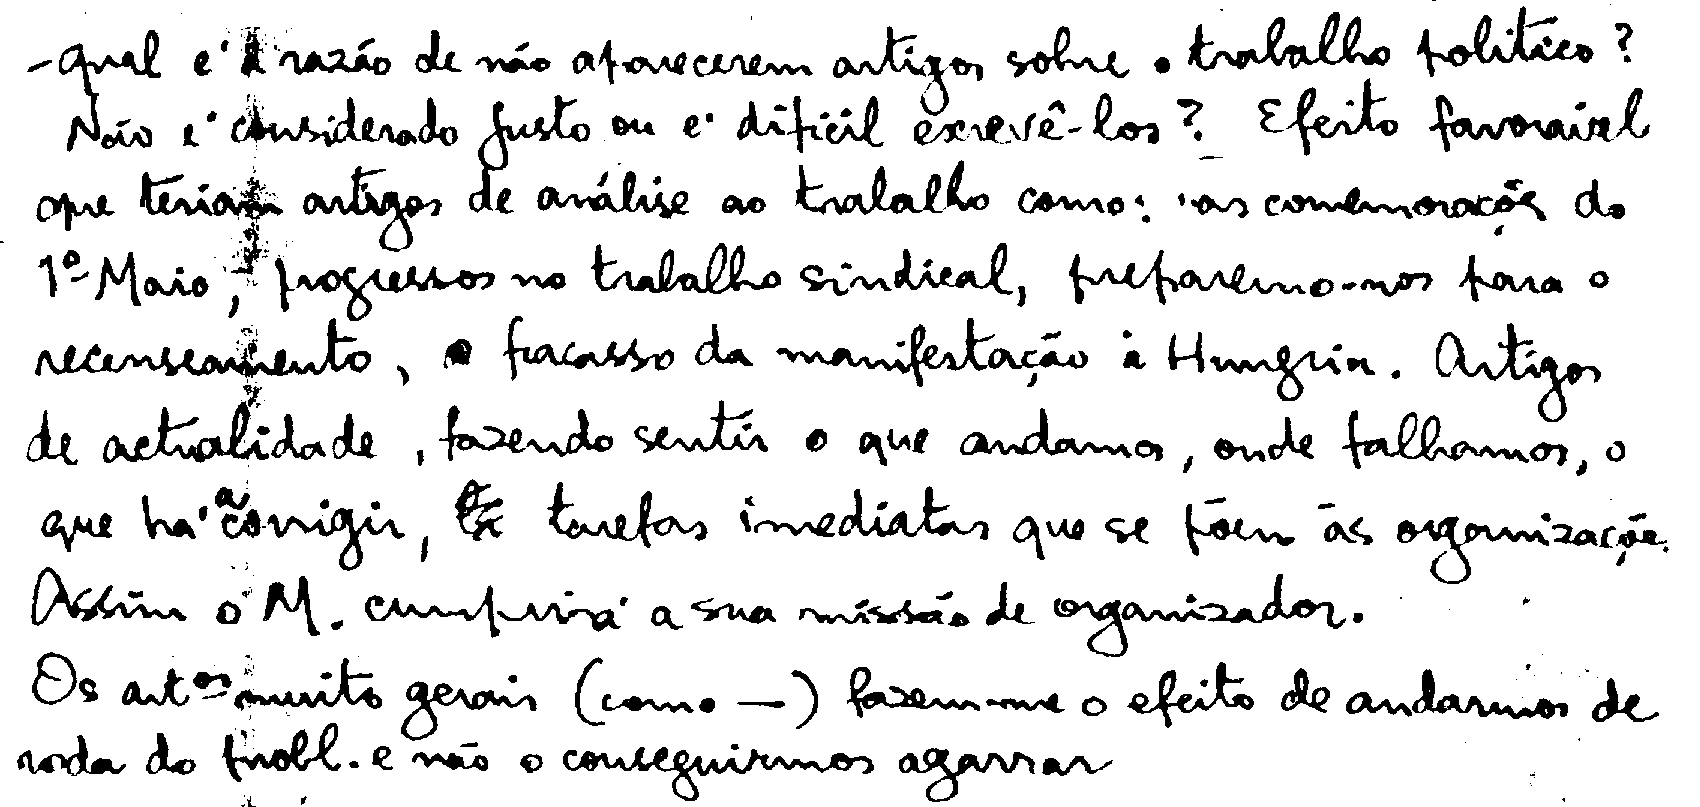 - Qual é a razão de não aparecerem artigos sobre o trabalho político?
Não é considerado justo ou é difícil escrevê-los? Efeito favorável
que teriam artigos de análise ao trabalho como: as comemorações do
1º Maio, progressos no trabalho sindical, preparemo-nos para o
recenseamento, o fracasso da manifestação à Hungria. Artigos
de actualidade, fazendo sentir o que andamos, onde falhamos, o
que há a corrigir, tarefas imediatas que se põem às organizações.
Assim o M. cumprirá a sua missão de organizador.
Os artºs muito gerais (como —) fazem-me o efeito de andarmos de
roda do probl. e não o conseguirmos agarrar